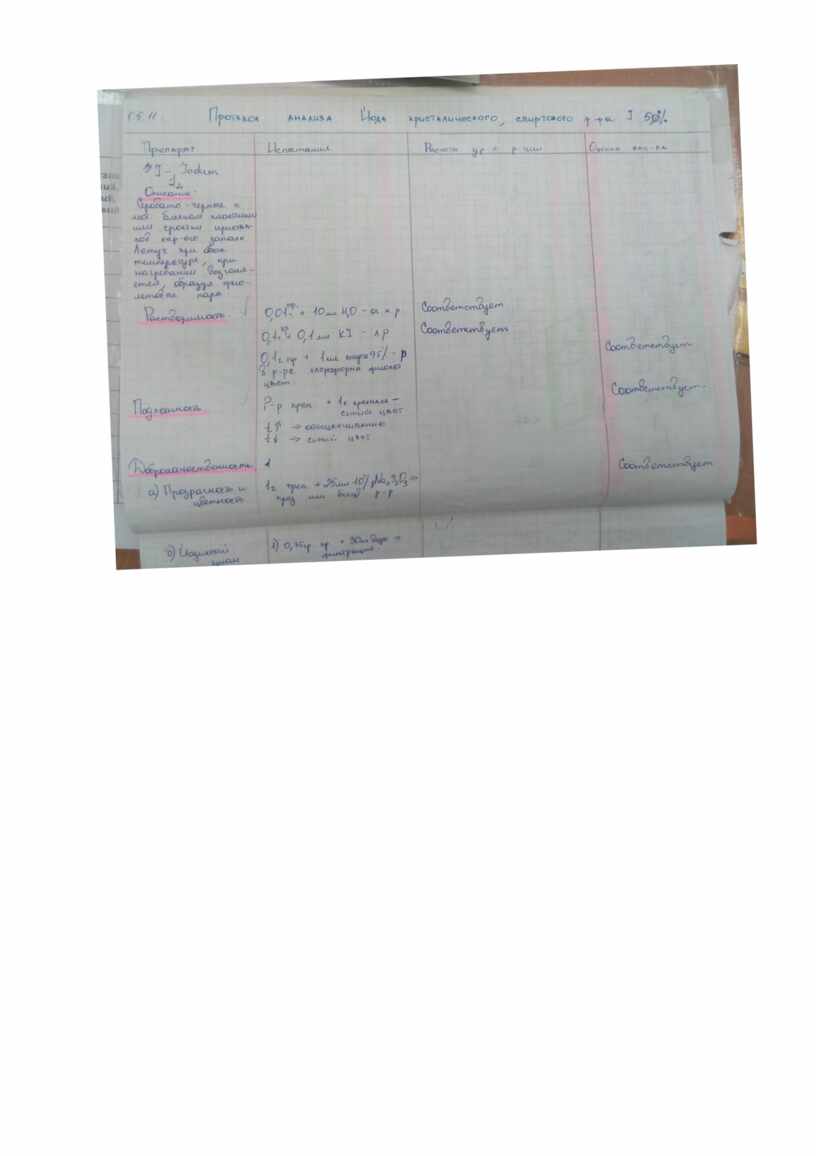 Протокол анализа Йода кристалического, спиртового р-ра I 5%
Препарат
Испытания
Расчеты ур и р-ции
Оценка кач-ва
Iodum
I2
Описание:
Серовато-черные с
мет. блеском пластинки
или сростки кристал-
лов хар-ого запаха
Летуч при обык.
температуре, при
нагревании возгоня-
ется, образуя фио-
летовые пары
Растворимость.
0,01г. пр. + 10 мл H2O - о. м. р.
Соответствует
0,1г. пр + 0,1 мл KI - л.р
Соответствует
0,1г пр + 1 мл спирта 95% - р
В р-ре хлороформа фиолет
цвет.
Соответствует
Подлинность
Р-р преп. + 1к крахмала -
синий цвет
t↑ → обесцвечивание
t↓ → синий цвет
Соответствует.
Доброкачественность
а) Прозрачность и
цветность
1г преп. + 25мл 10% Na2S2O3 =
проз или бесцв р-р
Соответствует
б) Йодистый
циан
1) 0,75гр пр + 30мл воды =
фильтрация.